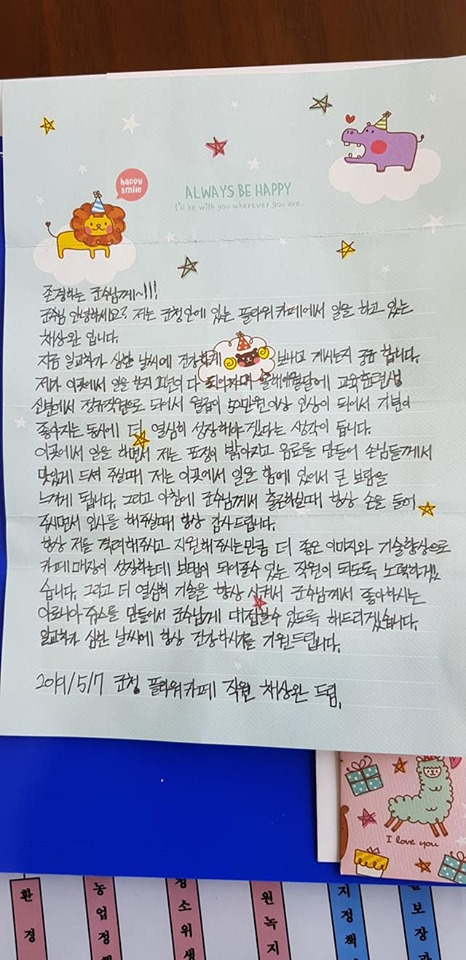 happy
smile
ALWAYS BE HAPPY
I'll be with you wherever you are.
존경하는 군수님께~!!!
군수님 안녕하세요? 저는 군청안에 있는 플라워카페에서 일을 하고 있는
채상완 입니다.
지금 일교차가 심한 날씨에 건강하게 보내고 계시는지 궁금 합니다.
제가 이곳에서 일을 한지 2년이 다 되어가며 올해에 교육훈련생
신분에서 정규직원으로 되어서 월급이 50만원이상 인상이 되어서 기분이
좋아지는 동시에 더 열심히 성장해야겠다는 생각이 듭니다.
이곳에서 일을 하면서 저는 표정이 밝아지고 음료를 만들어 손님들께서
맛있게 드셔 주실때 저는 이곳에서 일을 함에 있어서 큰 보람을
느끼게 됩니다. 그리고 아침에 군수님께서 출근하실때 항상 손을 들어
주시면서 인사를 해주실때 항상 감사드립니다.
항상 저를 격려해주시고 지원해주시는만큼 더 좋은 이미지와 기술향상으로
카페매장이 성장하는데 보탬이 되어줄수 있는 직원이 되도록 노력하겠
습니다. 그리고 더 열심히 기술을 향상 시켜서 군수님께서 좋아하시는
아로니아 쥬스를 만들어서 군수님께 대접할수 있도록 해드리겠습니다.
일교차가 심한 날씨에 항상 건강하시기를 기원드립니다.
2019/5/7 군청 플라워카페 직원 채상완 드림.
I love you
환경
농업정책
청소위생
원녹지
지정책
보장과